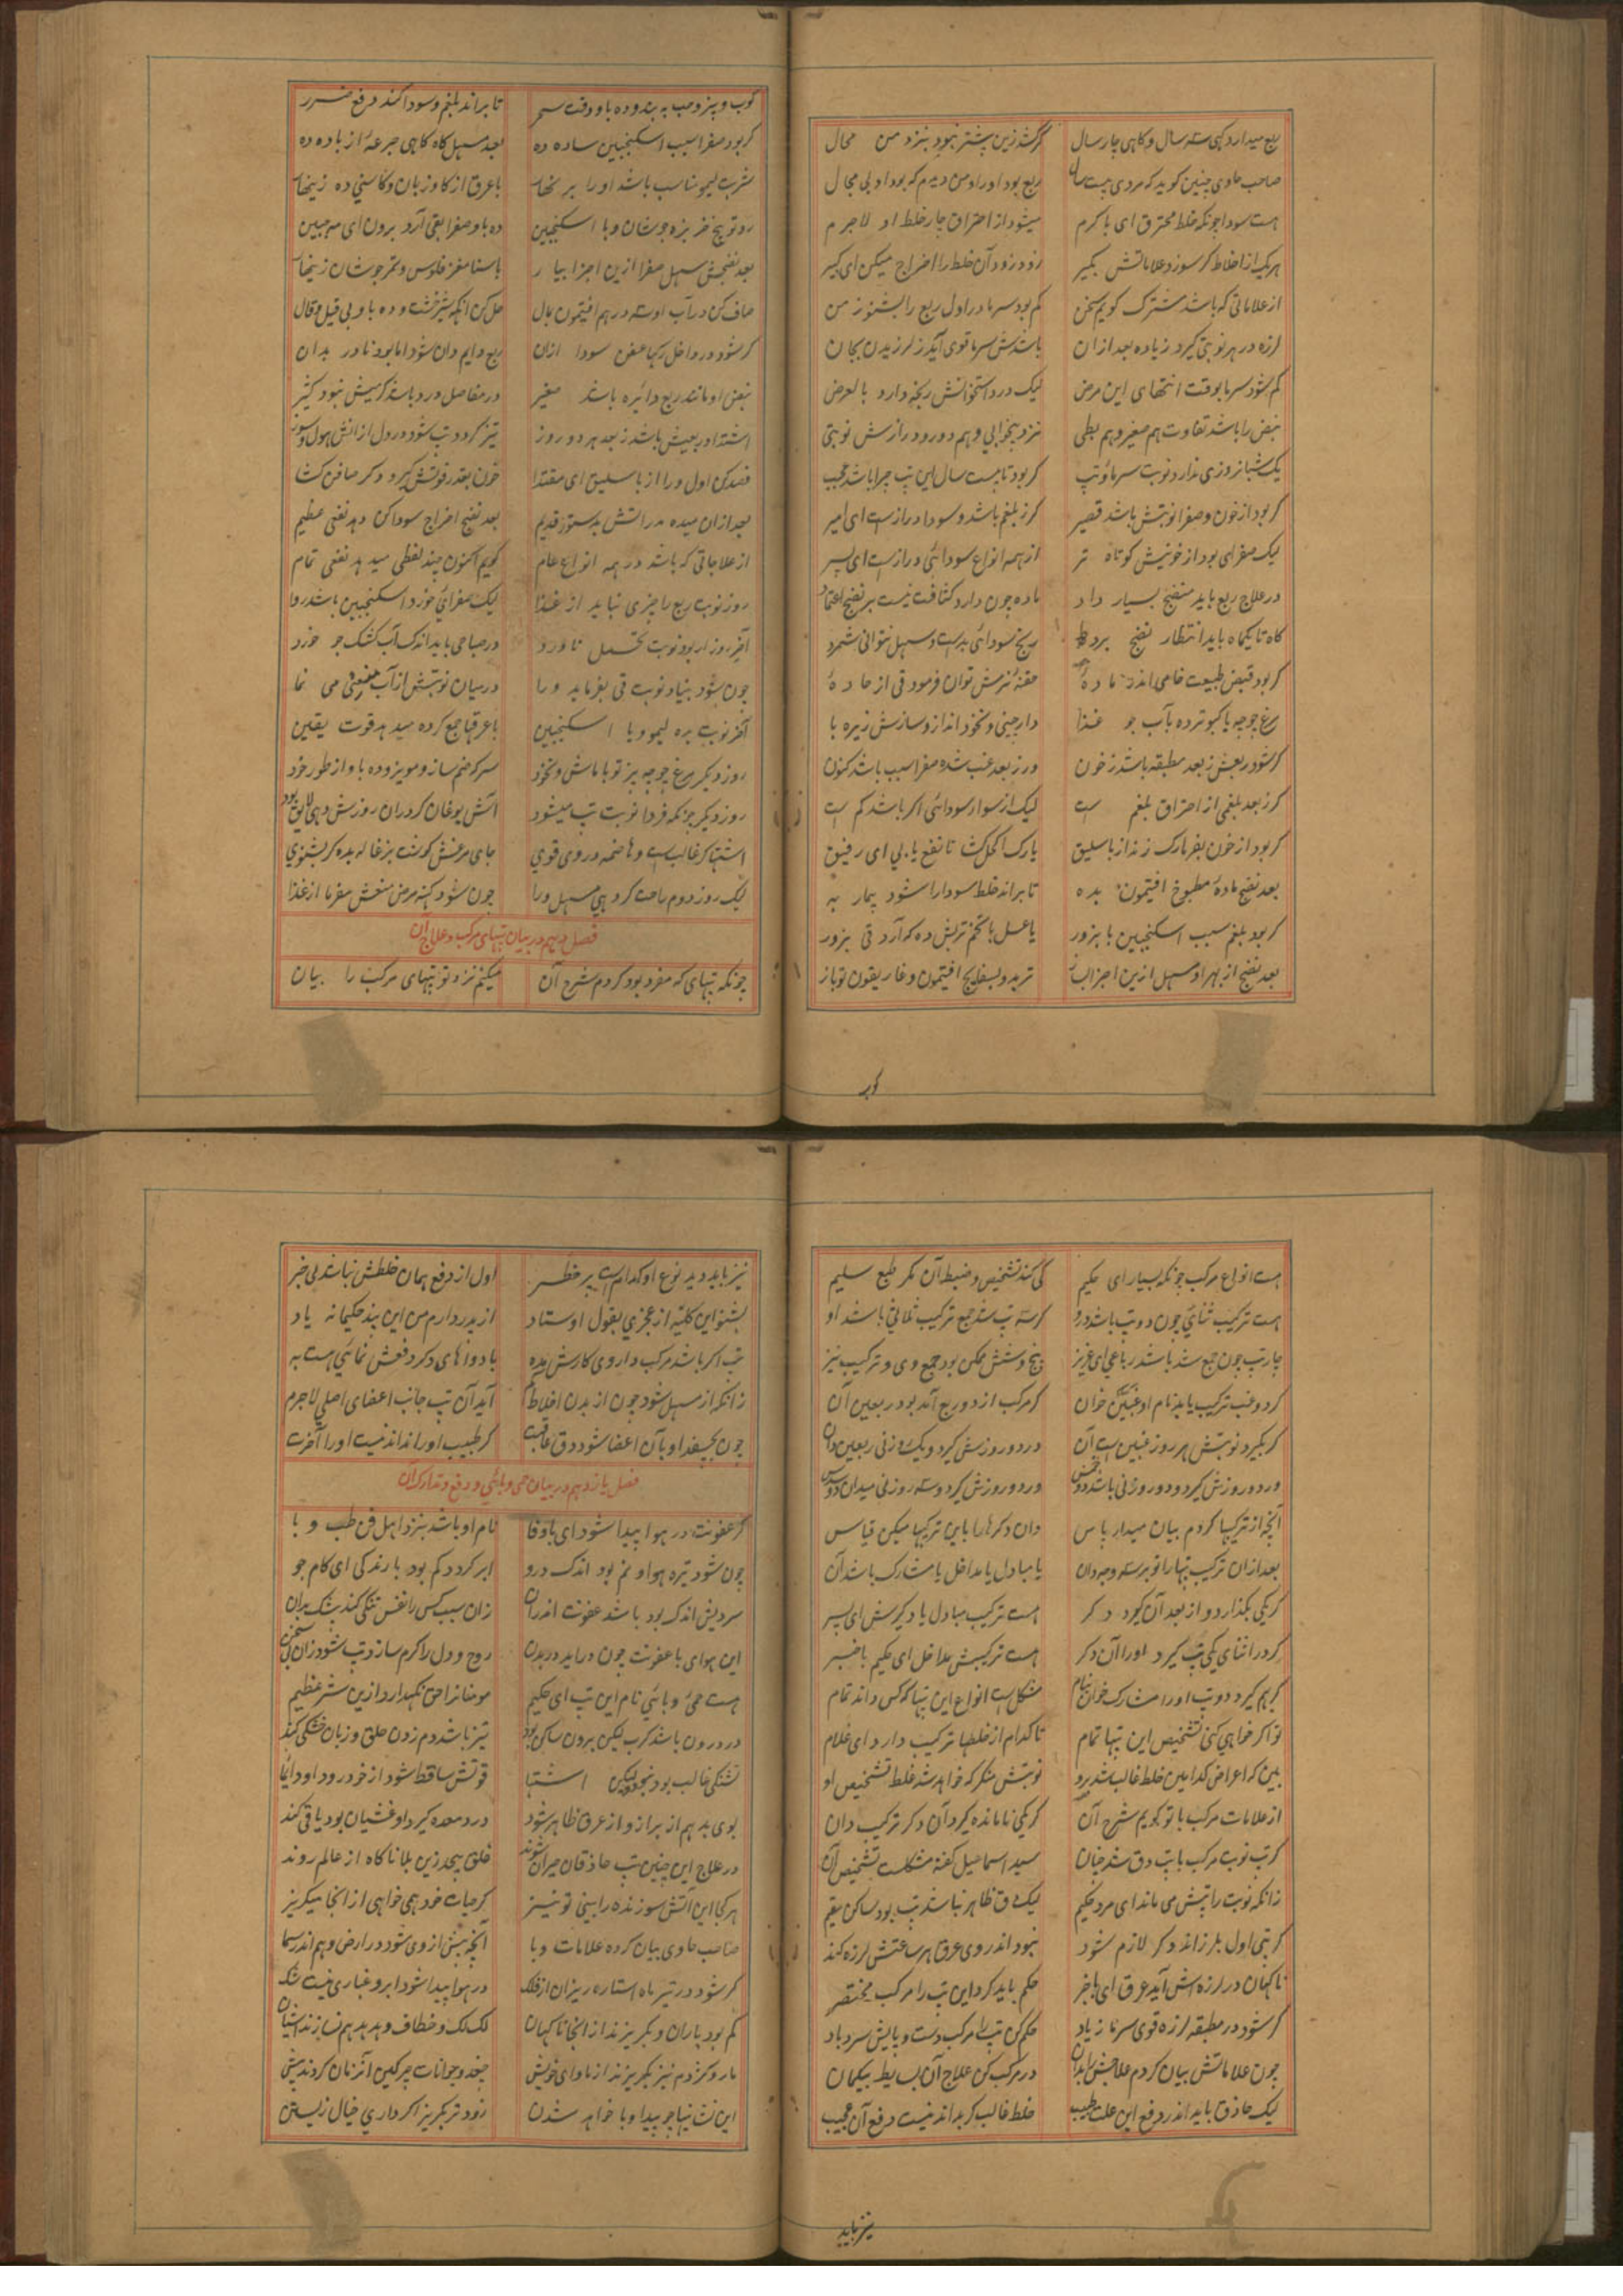 ربع میدارد کهی سه سال و کاهی چار سال گرشد زین پشتر نبود بنزد من محال
صاحب حاوی چنین کوید که مردی بیست سال ربع بود او را و من دیدم که بود او بی مجال
هست سودا چونکه خلط محترق ای با کرم میشود از احتراق چار خلط او لاجرم
هر یک از اخلاط کر سوزد علاماتش بکیر زود زود آن خلط را اخراج میکن ای کبیر
از علاماتی که باشد مشترک کویم سخن کم بود سرما در اول ربع را بشنو ز من
لرزه در هر نوبتی کیرد زیاده بعد ازان باشدش سرما قوی آید ز لرزیدن بجان
کم شود سرما بوقت انتهای این مرض لیک درد استخوانش رنجه دارد بالعرض
نبض را باشد تفاوت هم صغیر و هم بطی نزد بیخوابی و هم دور و درازش نوبتی
یک شبانروزی ندارد نوبت سرما و تپ کر بود تا بیست سال این تپ چرا باشد عجب
کر بود از خون و صفرا نوبتش باشد قصیر کرز بلغم باشد و سودا دراز است ای امیر
لیک صفرای بود از خونیش کوتاه تر از همه انواع سودائی دراز است ای پسر
در علاج ربع باید منضج بسیار داد ماده چون دارد کثافت نیست بر نضج اعتماد
کاه تا یکماه باید انتظار نضج برد ریح سودائی بد است و سهل نتوانی شمرد
کر بود قبض طبیعت خامی اندر ماده حقنهٔ نرمش توان فرمود قی از حاده
مرغ چوجه یا کبوتر ده بآب جو غذا دارچینی و نخود انداز و سازش زیره با
کر شود ربعش ز بعد مطبقه باشد ز خون ور ز بعد غب شده صفرا سبب باشد کنون
کر ز بعد بلغمی از احتراق بلغم است لیک از سودا و سودائی اکر باشد کم است
کر بود از خون بفرما رک زند از باسلیق یا رک اکحل کشا تا نفع یابی ای رفیق
بعد نضج ماده مطبوخ افتیمون بده تا براند خلط سودا را شود بیمار به
کر بود بلغم سبب اسکنجبین با بزور یا عسل با تخم تربش ده که آرد قی بزور
بعد نضج از بهر او مسهل ازین اجزا بساز تربد و بسفایج افتیمون و غاریقون تو باز
کوب
کوب و بپز و حب به بند و ده باو وقت سحر تا براند بلغم و سودا کند دفع ضرر
کر بود صفرا سبب اسکنجبین ساده ده بعد مسهل کاه کاهی جرعهٔ از باده ده
شربت لیمو مناسب باشد او را بر نخار با عرق از کاوزبان و کاسنی ده زینهار
رو تو بیخ خربزه جوشان و با اسکنجبین ده باو صفرا بقی آرد برون ای مه جبین
بعد نضجش مسهل صفرا ازین اجزا بیار با سنا مغز فلوس و تمر جوشان زینهار
صاف کن در آب او سه درهم افتیمون بمال حل کن آنکه شیرخشت و ده باو بی قیل و قال
کر شود در داخل رکها عفن سودا ازان ربع دایم دان شود اما بود نادر بدان
نبض او مانند ربع دائره باشد صغیر در مفاصل درد باشد کرمیش نبود کثیر
اشتداد ربعیش باشد ز بعد هر دو روز تیز کردد تپ شود در دل ازانش هول و سوز
فصد کن اول ورا از باسلیق ای مقتدا خون بقدر قوتش کیر و دکر صافن کشا
بعد ازان میده مدراتش بدستور قدیم بعد نضج اخراج سودا کن دهد نفعی عظیم
از علاجاتی که باشد در همه انواع عام کویم اکنون چند لفظی میدهد نفعی تمام
روز نوبت ربع را چیزی نباید از غذا لیک صفرائی خورد اسکنجبین باشد روا
آخر روز ار بود نوبت تحمل ناورد در صباحی باید اندک آب کشک جو خورد
چون شود بنیاد نوبت قی بفرماید ورا در میان نوبتش از آب می نما
آخر نوبت بده لیمو و یا اسکنجبین با عرقها جمع کرده میدهد قوت یقین
روز دیکر مرغ چوجه پز تو با ماش و نخود سرکه ضم ساز و مویز و ده باو از طور خود
روز دیکر جز که فردا نوبت تپ میشود آش بوغان کر دران روزش دهی لایق بود
اشتها کر غالب است و هاضمه در وی قوی جای مرغش کوشت بزغاله بده کر بشنوی
لیک روز دوم راحت کر دهی مسهل ورا چون شود کهنه مرض منعش مفرما از غذا
فصل دهم در بیان تپهای مرکب و علاج آن
چونکه تپهای که مفرد بود کردم شرح آن میکنم نزد تو تپهای مرکب را بیان
هست انواع مرکب چونکه بسیار ای حکیم کی کند تشخیص و ضبط آن مکر طبع سلیم
هست ترکیب ثنائی چون دو تپ باشد درو کر سه تپ شد جمع ترکیب ثلاثی باشد او
چار تپ چون جمع شد باشد رباعی ای عزیز پنج و شش ممکن بود جمع وی و ترکیب نیز
کر دو غب ترکیب یابد نام او غبین خوان کر مرکب از دو ربع آمد بود ربعین آن
کر بکیرد نوبتش هر روز غبین است آن در دو روزش کیرد و یک روز نی ربعین دان
ور دو روزش کیرد و دو روز نی باشد دو خمس ور دو روزش کیرد و سه روز نی میدان دو سدس
آنچه از ترکیبها کردم بیان میدار پاس وان دکرها را باین ترکیبها میکن قیاس
بعد ازان ترکیب تپها را تو بر سه وجه دان یا مبادل یا مداخل یا مشارک باشد آن
کر یکی بگذارد و از بعد آن کیرد دکر هست ترکیب مبادل یاد کیرش ای پسر
کر در اثنای یکی تپ کیرد او را آن دکر هست ترکیبش مداخل ای حکیم باخبر
کر بهم کیرد دو تپ او را مشارک خوان بنام مشکل است انواع این تپها که کس داند تمام
تو اکر خواهی کنی تشخیص این تپها تمام تا کدام از خلطها ترکیب دارد ای غلام
بین که اعراض کدامین خلط غالب شد برو نوبتش منکر که خواهد شد غلط تشخیص او
از علامات مرکب با تو کویم شرح آن کر یکی نامانده کیرد آن دکر ترکیب دان
کر تپ نوبت مرکب با تپ دق شد چنان سید اسماعیل کفته مشکلست تشخیص آن
زانکه نوبت را تپش می ماند ای مرد حکیم لیک دق ظاهر نباشد تپ بود ساکن مقیم
کر تپی اول بلرزاند دکر لازم شود نبود اندر وی عرق هر ساعتش لرزه کند
ناکهان در لرزه اش آید عرق ای باخبر حکم باید کرد این تپ را مرکب مختصر
کر شود در مطبقه لرزه قوی سرما زیاد حکم کن تپ را مرکب دست و پایش سرد باد
چون علاماتش بیان کردم علاجش را بدان در مرکب کن علاج آن بسایط بیکمان
لیک حاذق باید اندر دفع این علت طبیب خلط غالب کر بداند نیست دفع آن عجیب
نیز باید
نیز باید دید نوع او کدام است پر خطر اول از دفع همان خلطش نباشد بی خبر
بشنو این کلیه از عجزی بقول اوستاد از پدر دارم من این پند حکیمانه یاد
تپ اکر باشد مرکب داروی کارش مده با دواهای دکر دفعش نمائی هست به
زانکه از مسهل شود چون از بدن اخلاط کم آید آن تپ جانب اعضای اصلی لاجرم
چون بچسفد او بآن اعضا شود دق عاقبت کر طبیب او را نداند نیست او را آخرت
فصل یازدهم در بیان حمی وبائی و دفع و تدارک آن
کر عفونت در هوا پیدا شود ای باوفا نام او باشد بنزد اهل فن طب وبا
چون شود تیره هوا و نم بود اندک درو ابر کردد کم بود بارندکی ای کام جو
سردیش اندک بود باشد عفونت اندران زان سبب کس را نفس تنکی کند بیشک بدان
این هوای با عفونت چون دراید در بدن روح و دل را کرم سازد تپ شود زان بی سخن
هست حمی وبائی نام این تپ ای حکیم مومنان را حق نکهدارد ازین شر عظیم
در درون باشد کرب لیکن برون ساکن بود تیز باشد دم زدن حلق و زبان خشکی کند
تشنکی غالب بود نبود ولیکن اشتها قوتش ساقط شود از خود رود او دایما
بوی بد هم از براز و از عرق ظاهر شود درد معده کیرد او غشیان بود یا قی کند
در علاج این چنین تپ حاذقان حیران شوند خلق بیحد زین بلا ناکاه از عالم روند
هر کجا این آتش سوزنده را بینی تو نیز کر حیات خود همی خواهی از انجا میکریز
صاحب حاوی بیان کرده علامات وبا آنچه پیش از وی شود در ارض و هم اندر سما
کر شود در تیر ماه استاره ریزان از فلک در هوا پیدا شود ابر و غباری نیست شک
کم بود باران و بکریزند از انجا ناکهان لک لک و خطاف و هدهد هم نسازند آشیان
مار و کژدم نیز بکریزند از ماوای خویش جغد و حیوانات چرکین آن زمان کردند بیش
این نشانیها چو پیدا وبا خواهد شدن زود تر بکریز اکر داری خیال زیستن